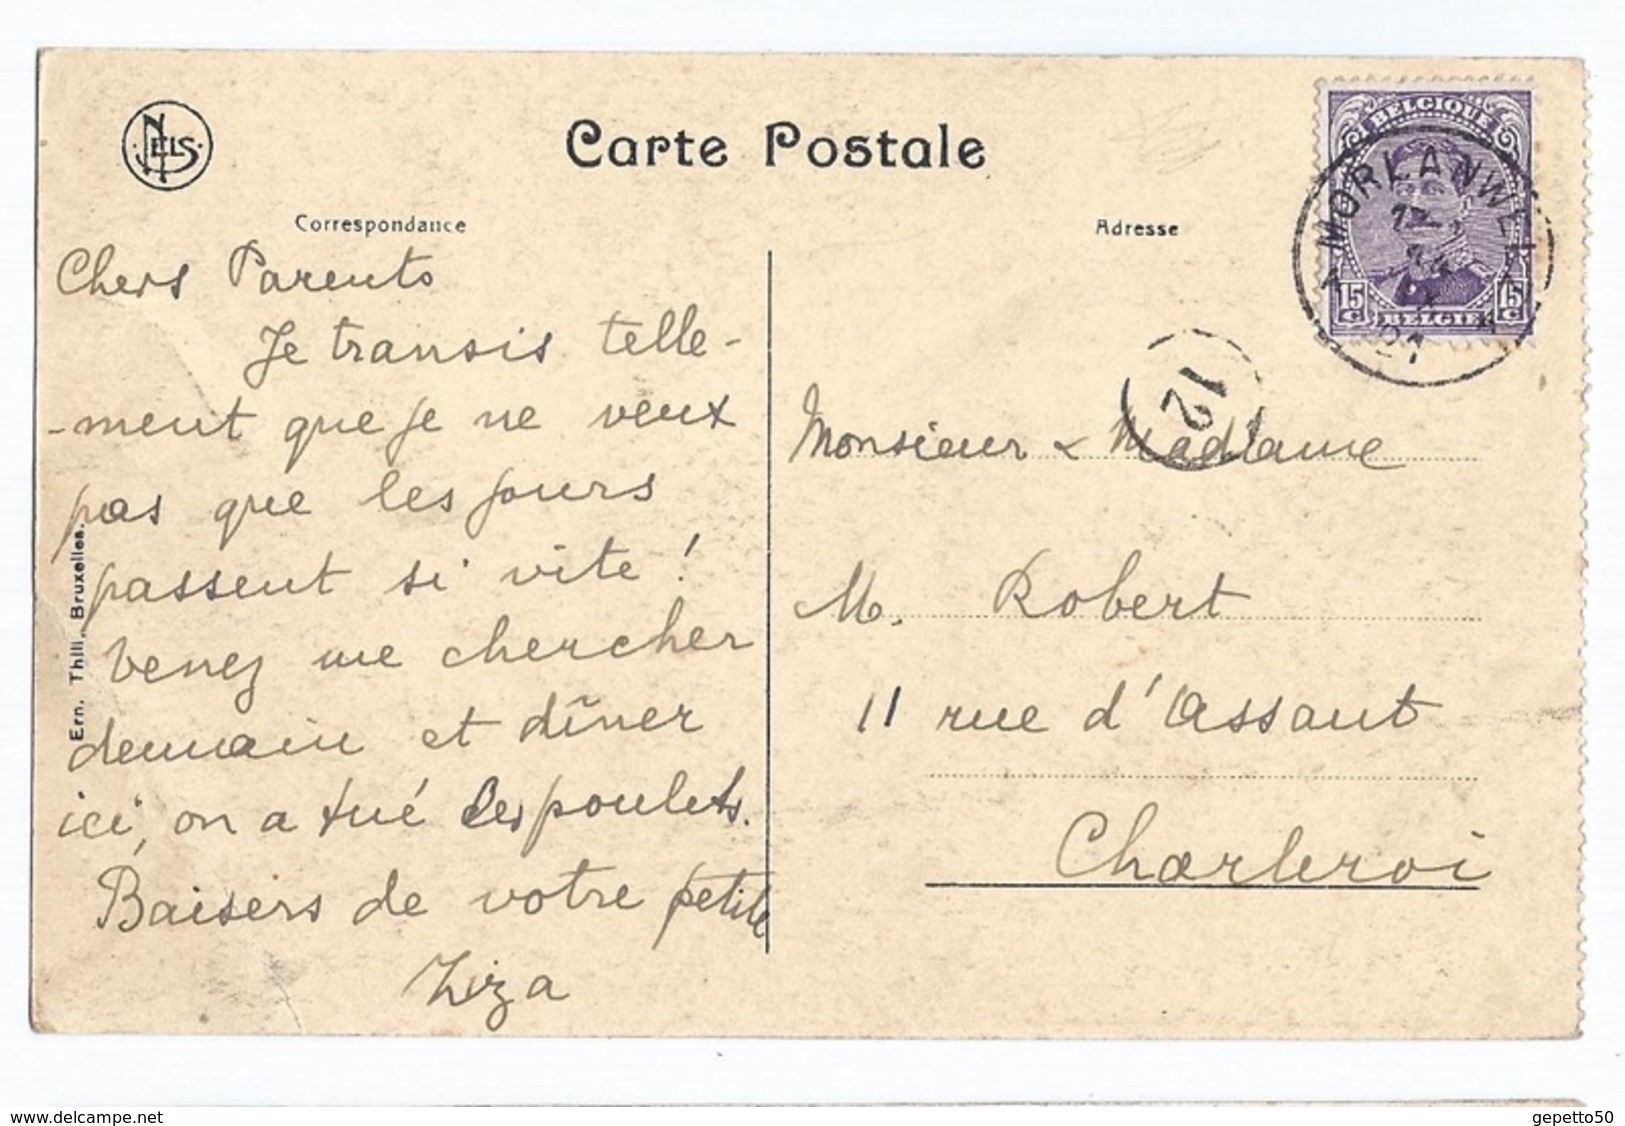 NELS
Carte Postale
Correspondance
Adresse
BELGIQUE
MORLANWE
15 C 15 C
BELGIE
12
Chers Parents
Je transis telle-
-ment que je ne veux
pas que les jours
passent si vite !
Venez me chercher
demain et dîner
ici, on a tué des poulets.
Baisers de votre petite
Ziza
Ern. Thill, Bruxelles.
Monsieur & Madame
M. Robert
11 rue d'Assaut
Charleroi
www.delcampe.net
gepetto50